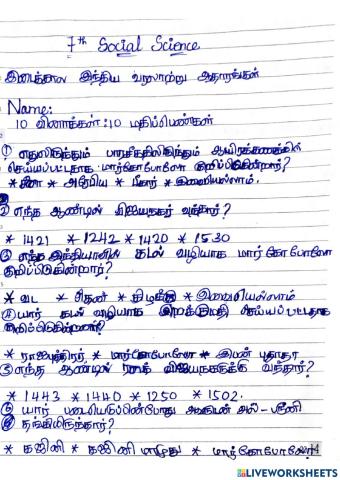 7th Social Science
இடைக்கால இந்திய வரலாற்று ஆதாரங்கள்
Name:
10 வினாக்கள்:10 மதிப்பெண்கள்
① பாரசீகத்திலிருந்தும் ஆயிரக்கணக்கில்
மார்கோபோலோ குறிப்பிடுகின்றார்?
* * அரேபிய * * இவையெல்லாம்.
② எந்த ஆண்டில் விஜயநகர் வந்தார்?
* 1421 * 1242 * 1420 * 1530
③ எந்த இந்தியாவில் கடல் வழியாக மார்கோபோலோ
குறிப்பிடுகின்றார்?
* வட * தென் * கிழக்கு * இவையெல்லாம்
④ யார் கடல் வழியாக இறக்குமதி செய்யப்பட்டதாக
குறிப்பிடுகின்றார்?
* ராஜபுத்திரர் * மார்கோபோலோ * இபன் பதூதா
⑤ எந்த ஆண்டில் விஜயநகருக்கு வந்தார்?
* 1443 * 1440 * 1250 * 1502.
⑥ யார் படையெடுப்பின்போது அவருடன் அல்-பரூனி
தங்கியிருந்தார்?
* கஜினி * கஜினி மாமுது * மார்கோபோலோ
LIVEWORKSHEETS